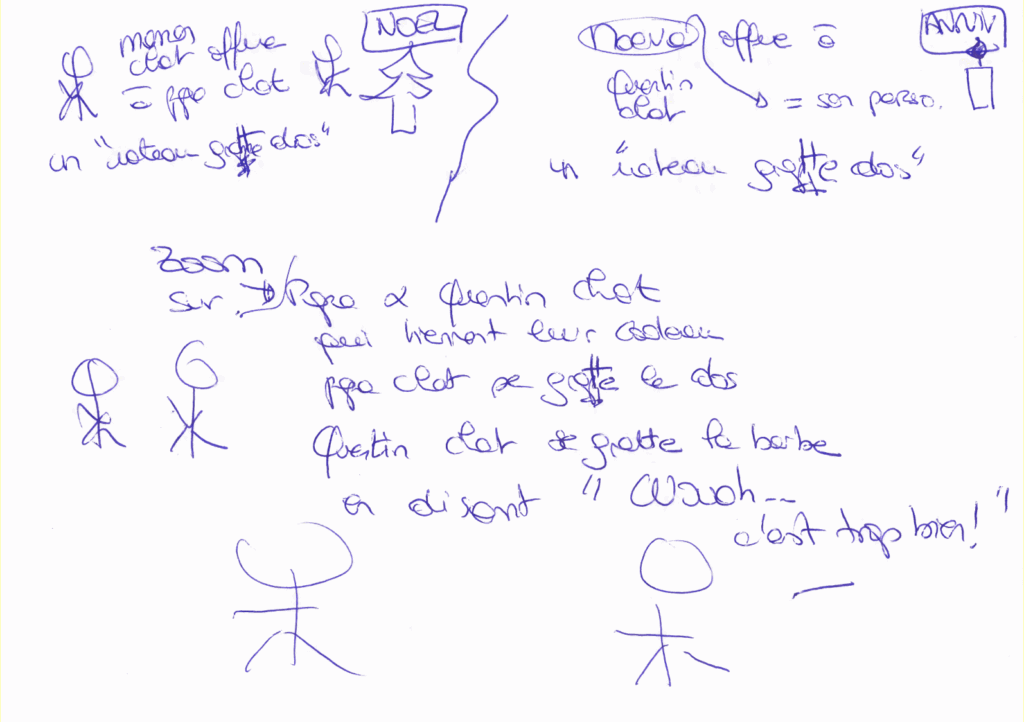 NOEL
maman
chat offre
à papa chat
un "rateau gratte dos"
ANNIV
offre à
Quentin
chat
= son perso.
un "rateau gratte dos"
Zoom
sur → Papa & Quentin chat
qui tiennent leur cadeau
papa chat se gratte le dos
Quentin chat se gratte la barbe
en disant "Waouh...
c'est trop bien!"